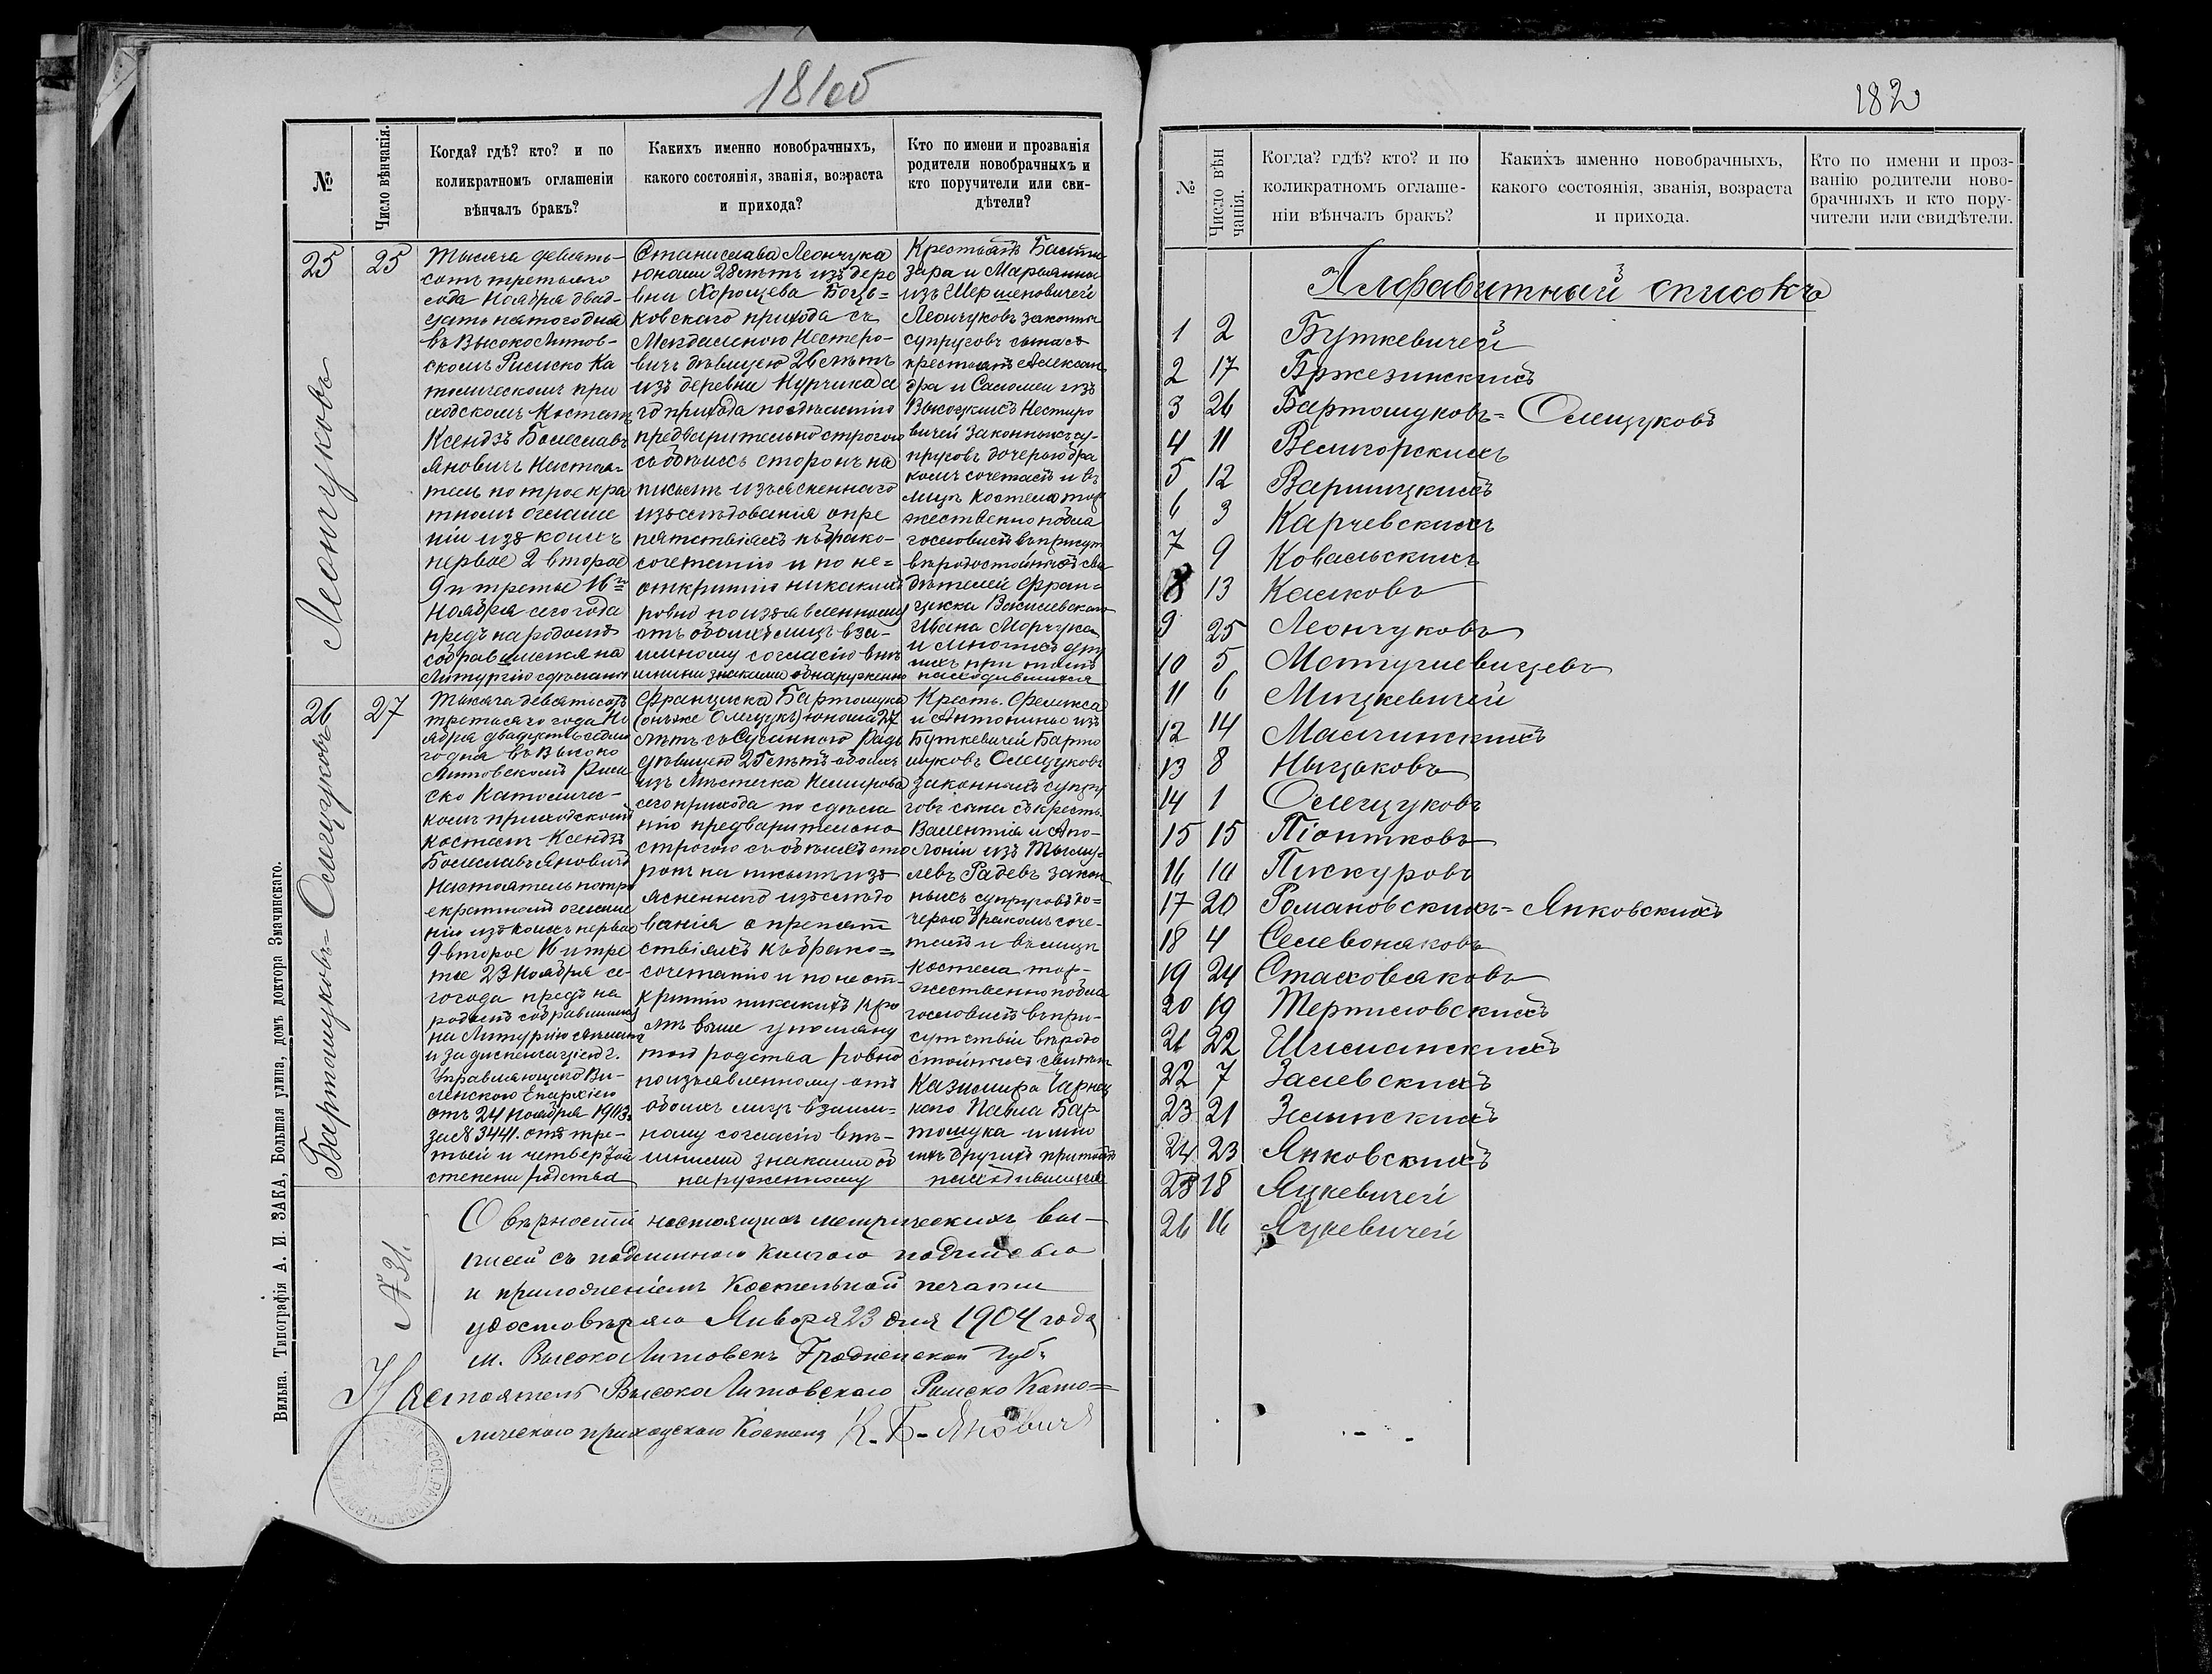 181об
№
Число вѣнчанія.
Когда? гдѣ? кто? и по
коликратномъ оглашеніи
вѣнчалъ бракъ?
Какихъ именно новобрачныхъ,
какого состоянія, званія, возраста
и прихода?
Кто по имени и прозванія
родители новобрачныхъ и
кто поручители или сви-
дѣтели?
25
25
Леончуковъ
Тысяча девять-
сотъ третьяго
года Ноября двад-
цать пятого дня
въ Высоко Литов-
скомъ Римско Ка
толическомъ при
ходскомъ Костелѣ
Ксендзъ Болеславъ
Яновичъ Настоя-
тель по трое кра
тномъ оглаше
ніи изъ коихъ
первое 2 второе
9 и третье 16го
Ноября сего года
предъ народомъ
собравшимся на
Литургію сдѣланномъ
Станислава Леончука
юношу 28 лѣтъ изъ дере
вни Хорощева Боцъ-
ковскаго прихода съ
Магдаленою Нестеро-
вичъ дѣвицею 26 лѣтъ
изъ деревни
го прихода по сдѣланію
предварительно строгого
съ обѣихъ сторонъ на
письмѣ изъясненнаго
изслѣдованія о пре
пятствіяхъ къ брако-
сочетанію и по не=
открытію никакихъ
ровно по изъявленному
отъ обоихъ лицъ вза-
имному согласію внѣ
шними знаками обнаруженно
Крестьянъ Балта
зара и Марьянны
изъ
Леончуковъ законныхъ
супруговъ сына съ
крестьянъ Алексан
дра и Саломеи изъ
Высоцкихъ Нестеро
вичей законныхъ су-
пруговъ дочерью бра
комъ сочеталъ и въ
лицѣ Костела тор
жественно побла
гословилъ въ присут
вѣродостойныхъ сви
дѣтелей Фран-
циска Василевскаго
Ивана Морчука
и многихъ дру
гихъ при томъ
находившихся
26
27
Бартошуковъ-Олещуковъ
Тысяча девятьсотъ
третьяго года Но
ября двадцать седмо
го дня въ Высоко
Литовскомъ Рим
ско Католичес-
комъ приходскомъ
костелѣ Ксендзъ
Болеславъ Яновичъ
Настоятель по тро
екратномъ оглаше
ніи изъ коихъ первое
9 второе 16 и тре
тье 23 Ноября се-
го года предъ на
родомъ собравшимся
на Литургію сдѣланномъ
и за диспенсаціею г.
Управляющего Ви-
ленскою Епархіею
отъ 24 Ноября 1903г.
за № 3441. отъ тре-
тьей и четвертой
степени родства
Франциска Бартошука
(онъ же Олещукъ) юношу 27
лѣтъ съ Радь
дѣвицею 25 лѣтъ обоихъ
изъ Мѣстечка Немирова
сего прихода по сдѣла
нію предварительно
строгого съ обѣихъ сто
ронъ на письмѣ изъ
ясненного изслѣдо
ванія о препят
ствіяхъ къ брако=
сочетанію и по неот-
крытію никакихъ кро
мѣ выше упомяну
того родства ровно
по изъявленному отъ
обоихъ лицъ взаим=
ному согласію внѣ-
шними знаками об
наруженному
Кресть. Феликса
и Антонины изъ
Буткевичей Барто
шуковъ Олещуковъ
законныхъ супру
говъ сына съ кресть.
Валентія и Апо-
лоніи изъ
Радевъ закон
ныхъ супруговъ до=
черью бракомъ соче-
талъ и въ лицѣ
Костела тор-
жественно побла
гословилъ въ при-
сутствіи вѣродо
стойныхъ свидѣт
Казимира Чарнец
кого Павла Бар
тошука и мно
гихъ другихъ при томъ
находившихся
№ 31.
О вѣрности настоящихъ метрическихъ вы-
писей съ подлинною книгою подписью
и приложеніемъ Костельной печати
удостовѣряю Января 23 дня 1904 года
м. Высоко Литовскъ Гродненской Губ.
Настоятель Высоко Литовскаго Римско Като=
лическаго приходскаго Костела К. Б. Яновичъ
Вильна. Типографія А. И. ЗАКА, Большая улица, домъ доктора Значинскаго.
182
№
Число вѣн
чанія.
Когда? гдѣ? кто? и по
коликратномъ оглаше-
ніи вѣнчалъ бракъ?
Какихъ именно новобрачныхъ,
какого состоянія, званія, возраста
и прихода.
Кто по имени и проз-
ванію родители ново-
брачныхъ и кто пору-
чители или свидѣтели.
Алфавитный списокъ
1 2 Буткевичей
2 17 Бржезинскихъ
3 26 Бартошуковъ=Олещуковъ
4 11 Велигорскихъ
5 12 Варпицкихъ
6 3 Карчевскихъ
7 9 Ковальскихъ
8 13 Калковъ
9 25 Леончуковъ
10 5 Матушевицевъ
11 6 Мицкевичей
12 14 Малчинскихъ
13 8 Ныцаковъ
14 1 Олещуковъ
15 15 Піонтковъ
16 10 Пискуровъ
17 20 Романовскихъ=Янковскихъ
18 4 Селевоняковъ
19 24 Стаховяковъ
20 19 Терпиловскихъ
21 22 Шиманскихъ
22 7 Залевскихъ
23 21 Зелинскихъ
24 23 Янковскихъ
25 18 Яцкевичей
26 16 Яцкевичей